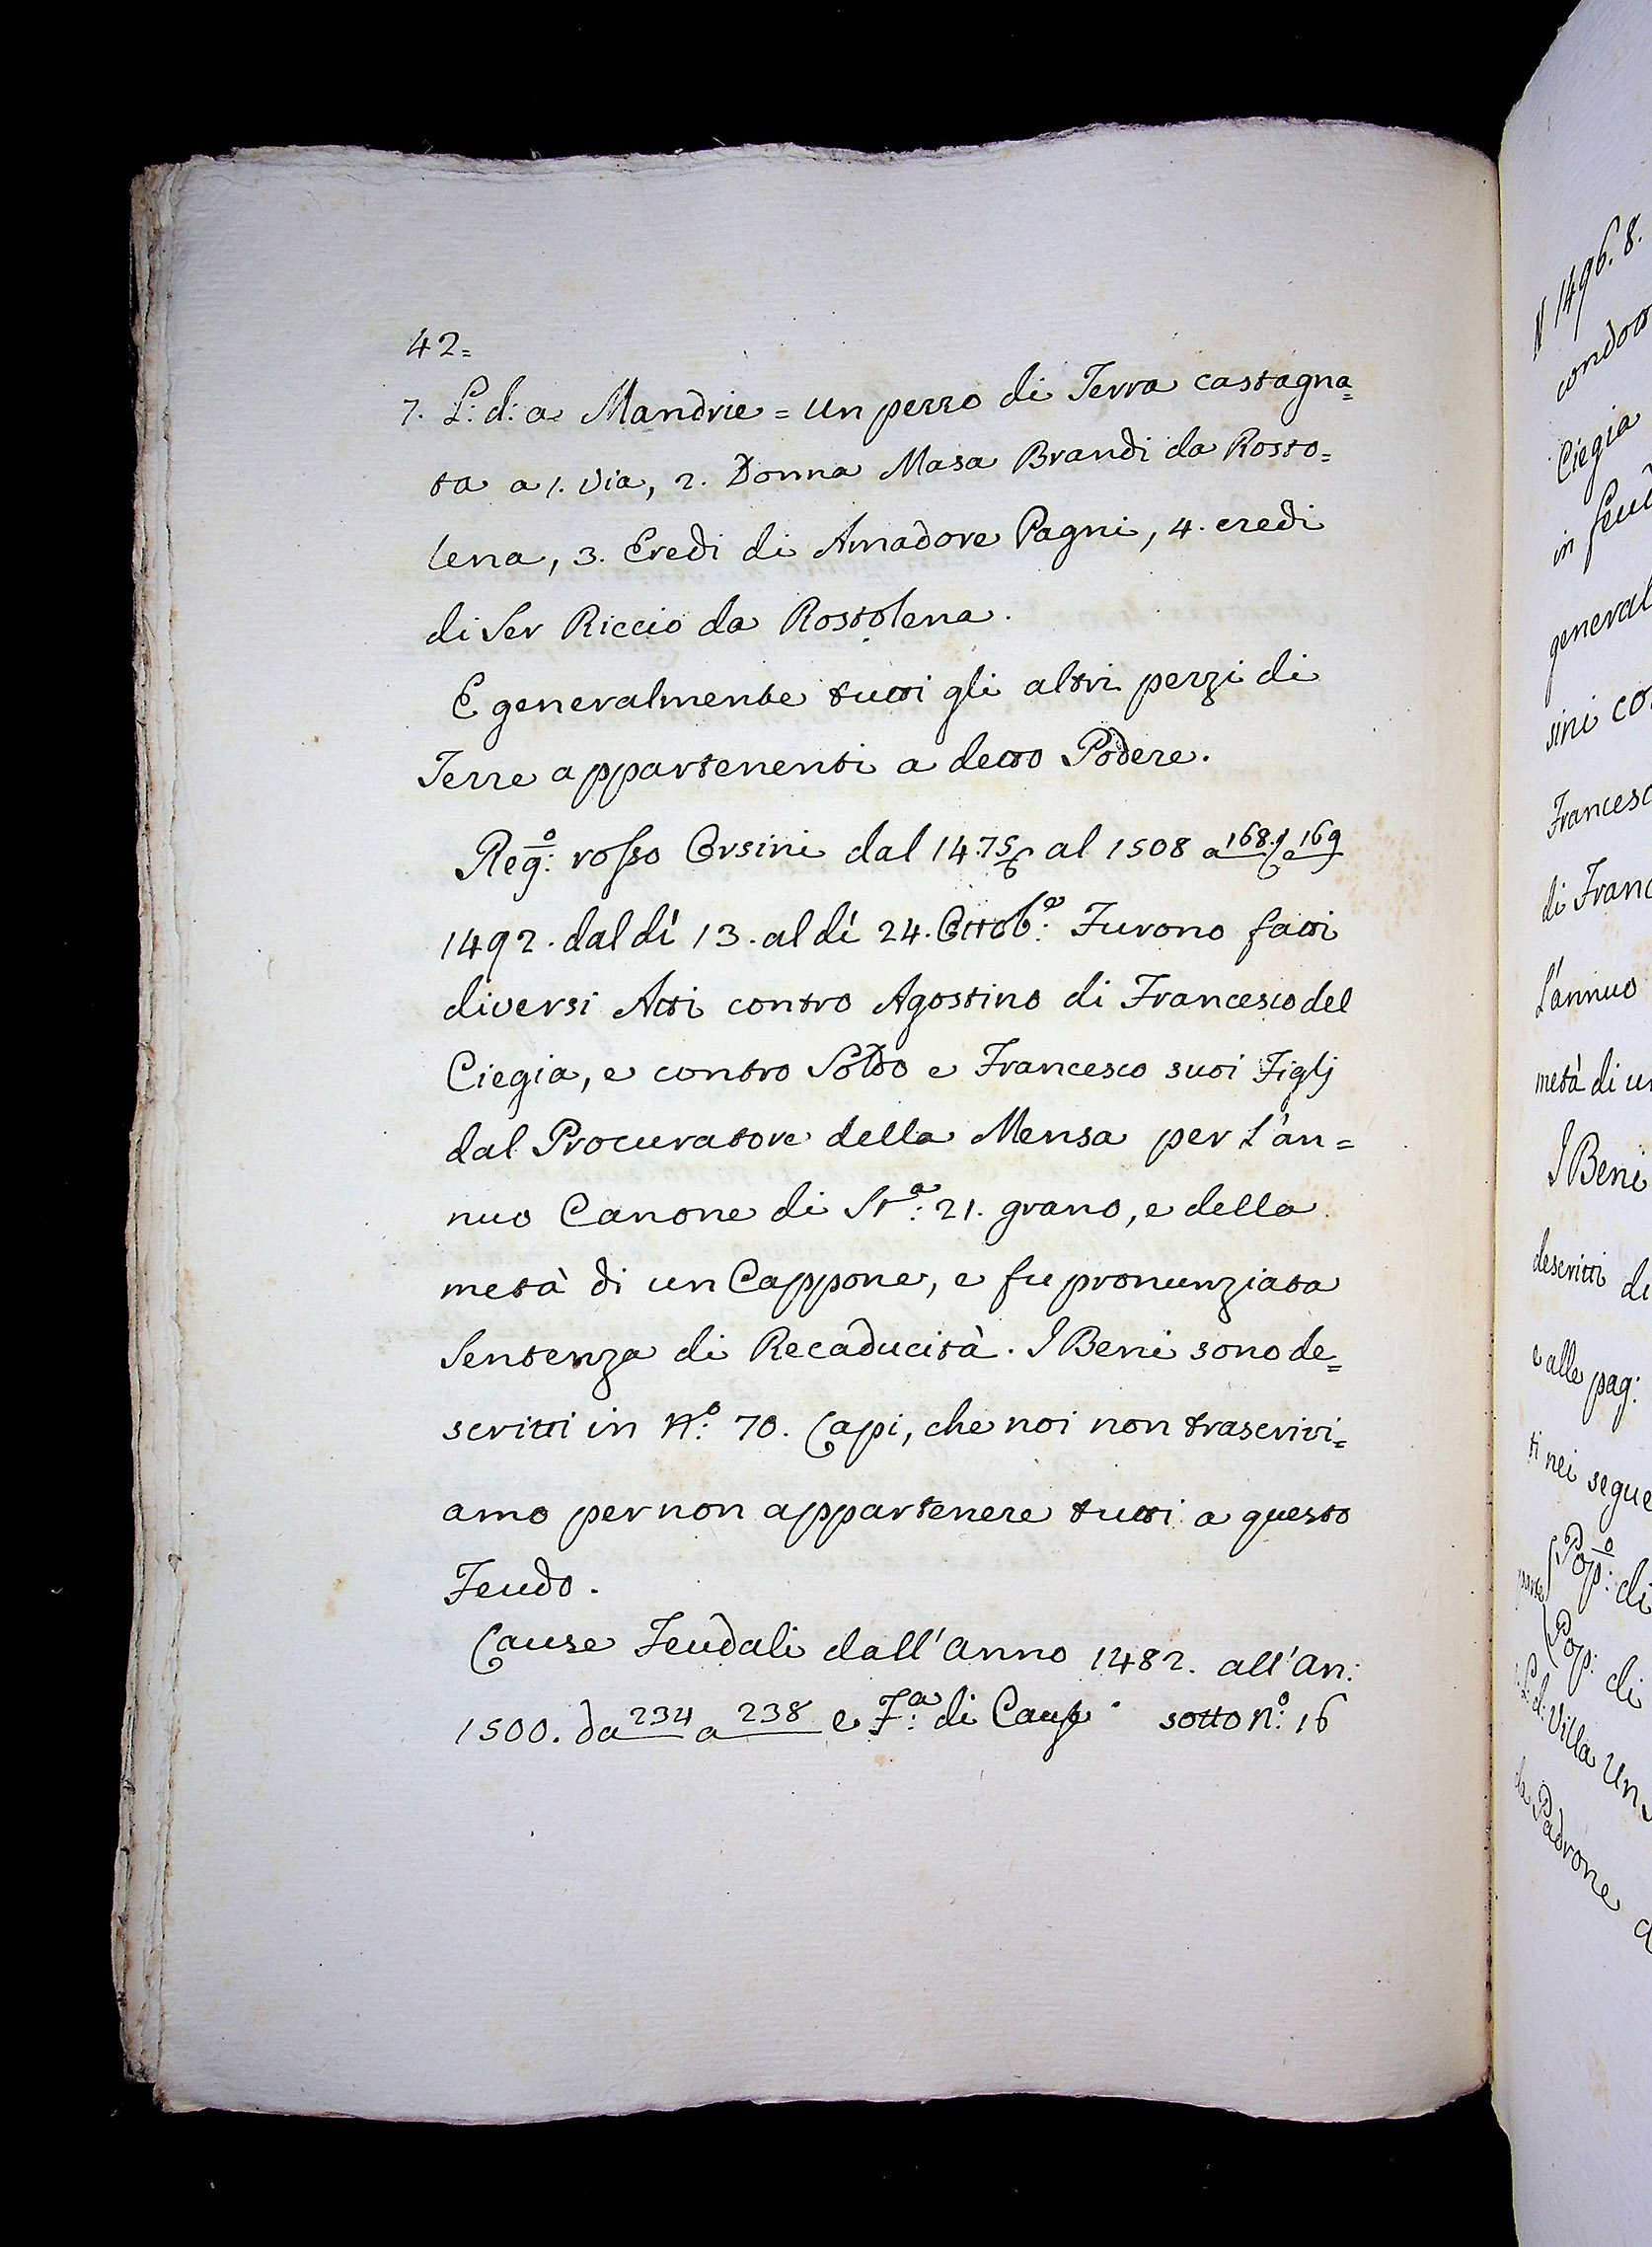 42=
7. L: d: a Mandrie = un pezzo di Terra castagna=
ta a 1. via, 2. Donna Masa Brandi da Rosto=
lena, 3. Eredi di Amadore Pagni, 4. eredi
di Ser Riccio da Rostolena.
E generalmente tutti gli altri pezzi di
Terre appartenenti a detto Podere.
Reg:º rosso Orsini dal 1475 al 1508 a 168. e 169
1492. dal dì 13. al dì 24. Ottob:e Furono fatti
diversi Atti contro Agostino di Francesco del
Ciegia, e contro Soldo e Francesco suoi Figlj
dal Procuratore della Mensa per l'an=
nuo Canone di St:a 21. grano, e della
metà di un Cappone, e fu pronunziata
Sentenza di Recaducità. I Beni sono de=
scritti in N:º 70. Capi, che noi non trascrivi=
amo per non appartenere tutti a questo
Feudo.
Cause Feudali dall'anno 1482. all'an:
1500. da 234 a 238 e F:a di Cause sotto n:º 16
N 1496. 8.
Ciegia
in
sini
di Franc
L'annuo
metà di
I Beni
descritti
e alle pag:
ti nei segue
Pop:º di
Pop: di
L: d: Villa Un
Padrone